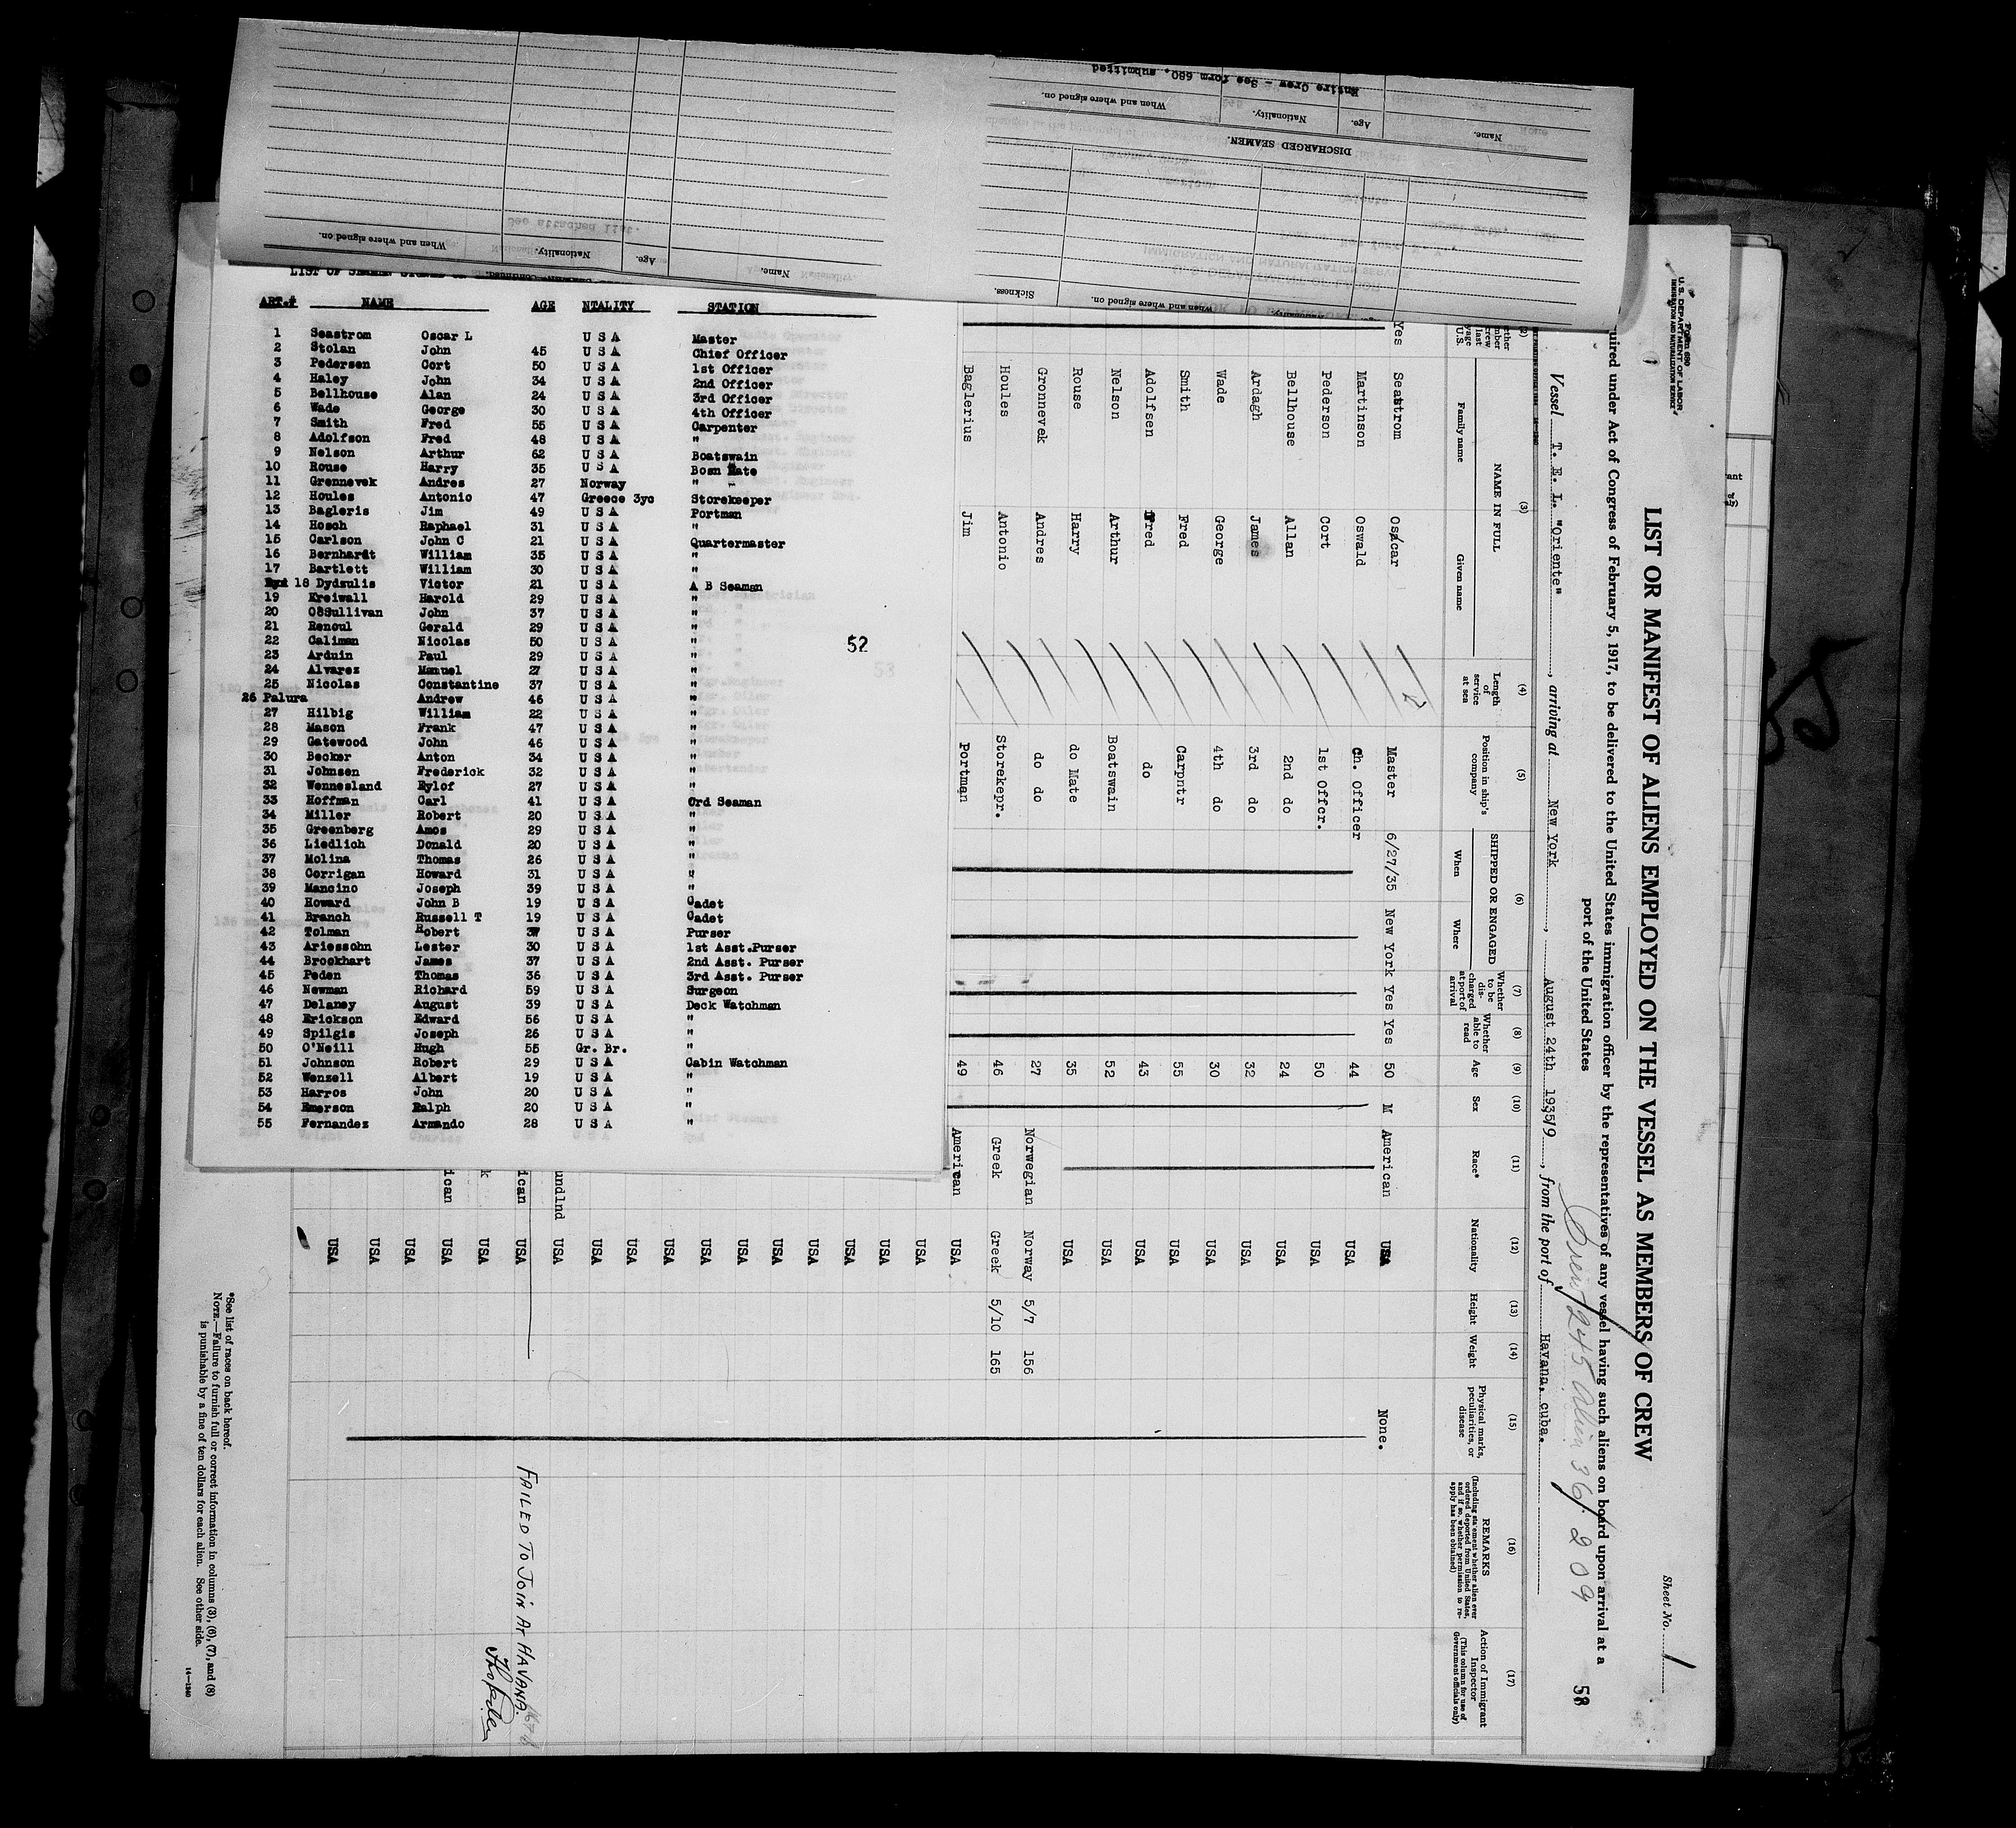 Entire Crew - See form 680. submitted
Name. Age. Nationality. When and where signed on.
DISCHARGED SEAMEN.
Name. Age. Nationality. When and where signed on.
See attached list.
When and where signed on. Sickness.
LIST OF SEAMEN SIGNED ON
ART.# NAME AGE NTALITY STATION
1 Seastrom Oscar L U S A Master
2 Stolan John 45 U S A Chief Officer
3 Pedersen Cort 50 U S A 1st Officer
4 Haley John 34 U S A 2nd Officer
5 Bellhouse Alan 24 U S A 3rd Officer
6 Wade George 30 U S A 4th Officer
7 Smith Fred 55 U S A Carpenter
8 Adolfson Fred 48 U S A "
9 Nelson Arthur 62 U S A Boatswain
10 Rouse Harry 35 U S A Bosn Mate
11 Grennevek Andres 27 Norway "
12 Houles Antonio 47 Greece 3yc Storekeeper
13 Bagleris Jim 49 U S A Portman
14 Hosch Raphael 31 U S A "
15 Carlson John C 21 U S A Quartermaster
16 Bernhardt William 35 U S A "
17 Bartlett William 30 U S A "
18 Dydsulis Victor 21 U S A A B Seaman
19 Kreiwall Harold 29 U S A "
20 O8Sullivan John 37 U S A "
21 Renoul Gerald 29 U S A "
22 Caliman Nicolas 50 U S A "
23 Arduin Paul 29 U S A "
24 Alvarez Manuel 27 U S A "
25 Nicolas Constantine 37 U S A "
26 Palura Andrew 46 U S A "
27 Hilbig William 22 U S A "
28 Mason Frank 47 U S A "
29 Gatewood John 46 U S A "
30 Becker Anton 34 U S A "
31 Johnsen Frederick 32 U S A "
32 Wennesland Eylof 27 U S A "
33 Hoffman Carl 41 U S A Ord Seaman
34 Miller Robert 20 U S A "
35 Greenberg Amos 29 U S A "
36 Liedlich Donald 20 U S A "
37 Molina Thomas 26 U S A "
38 Corrigan Howard 31 U S A "
39 Mancino Joseph 39 U S A "
40 Howard John B 19 U S A Cadet
41 Branch Russell T 19 U S A Cadet
42 Tolman Robert 37 U S A Purser
43 Ariessohn Lester 30 U S A 1st Asst.Purser
44 Brookhart James 37 U S A 2nd Asst. Purser
45 Peden Thomas 36 U S A 3rd Asst. Purser
46 Newman Richard 59 U S A Surgeon
47 Delaney August 39 U S A Deck Watchman
48 Erickson Edward 56 U S A "
49 Spilgis Joseph 26 U S A "
50 O'Neill Hugh 55 Gr. Br. "
51 Johnson Robert 29 U S A Cabin Watchman
52 Wenzell Albert 19 U S A "
53 Harros John 20 U S A "
54 Emerson Ralph 20 U S A "
55 Fernandez Armando 28 U S A "
52
Form 680
U. S. DEPARTMENT OF LABOR
IMMIGRATION AND NATURALIZATION SERVICE
Sheet No. 1
LIST OR MANIFEST OF ALIENS EMPLOYED ON THE VESSEL AS MEMBERS OF CREW
58
quired under Act of Congress of February 5, 1917, to be delivered to the United States immigration officer by the representatives of any vessel having such aliens on board upon arrival at a
port of the United States
Crew 245 Alien 36 / 209
Vessel T. E. L. "Oriente", arriving at New York, August 24th 1935, from the port of Havana, cuba.
(2) (3) (4) (5) (6) (7) (8) (9) (10) (11) (12) (13) (14) (15) (16) (17)
NAME IN FULL
Family name Given name
Length of service at sea
Position in ship's company
SHIPPED OR ENGAGED
When Where
Whether to be discharged at port of arrival
Whether able to read
Age
Sex
Race*
Nationality
Height
Weight
Physical marks, peculiarities, or disease
REMARKS
(Including statement whether alien ever ordered deported from United States, and if so, whether permission to reapply has been obtained)
Action of Immigrant Inspector
(This column for use of Government officials only)
Yes Seastrom Oscar Master 6/27/35 New York Yes Yes 50 M American USA None.
Martinson Oswald Ch. Officer 44 USA
Pederson Cort 1st Offcr. 50 USA
Bellhouse Allan 2nd do 24 USA
Ardagh James 3rd do 32 USA
Wade George 4th do 30 USA
Smith Fred Carpntr 55 USA
Adolfsen Fred do 43 USA
Nelson Arthur Boatswain 52 USA
Rouse Harry do Mate 35 USA
Gronnevek Andres do do 27 Norwegian Norway 5/7 156
Houles Antonio Storekepr. 46 Greek Greek 5/10 165
Baglerius Jim Portman 49 American USA
USA
USA
USA
USA
USA
USA
USA
USA
USA
USA
undlnd USA
ican USA FAILED TO JOIN AT HAVANA.
k USA
ican USA
USA
USA
USA
*See list of races on back hereof.
NOTE.—Failure to furnish full or correct information in columns (3), (6), (7), and (8)
is punishable by a fine of ten dollars for each alien. See other side.
14—1240